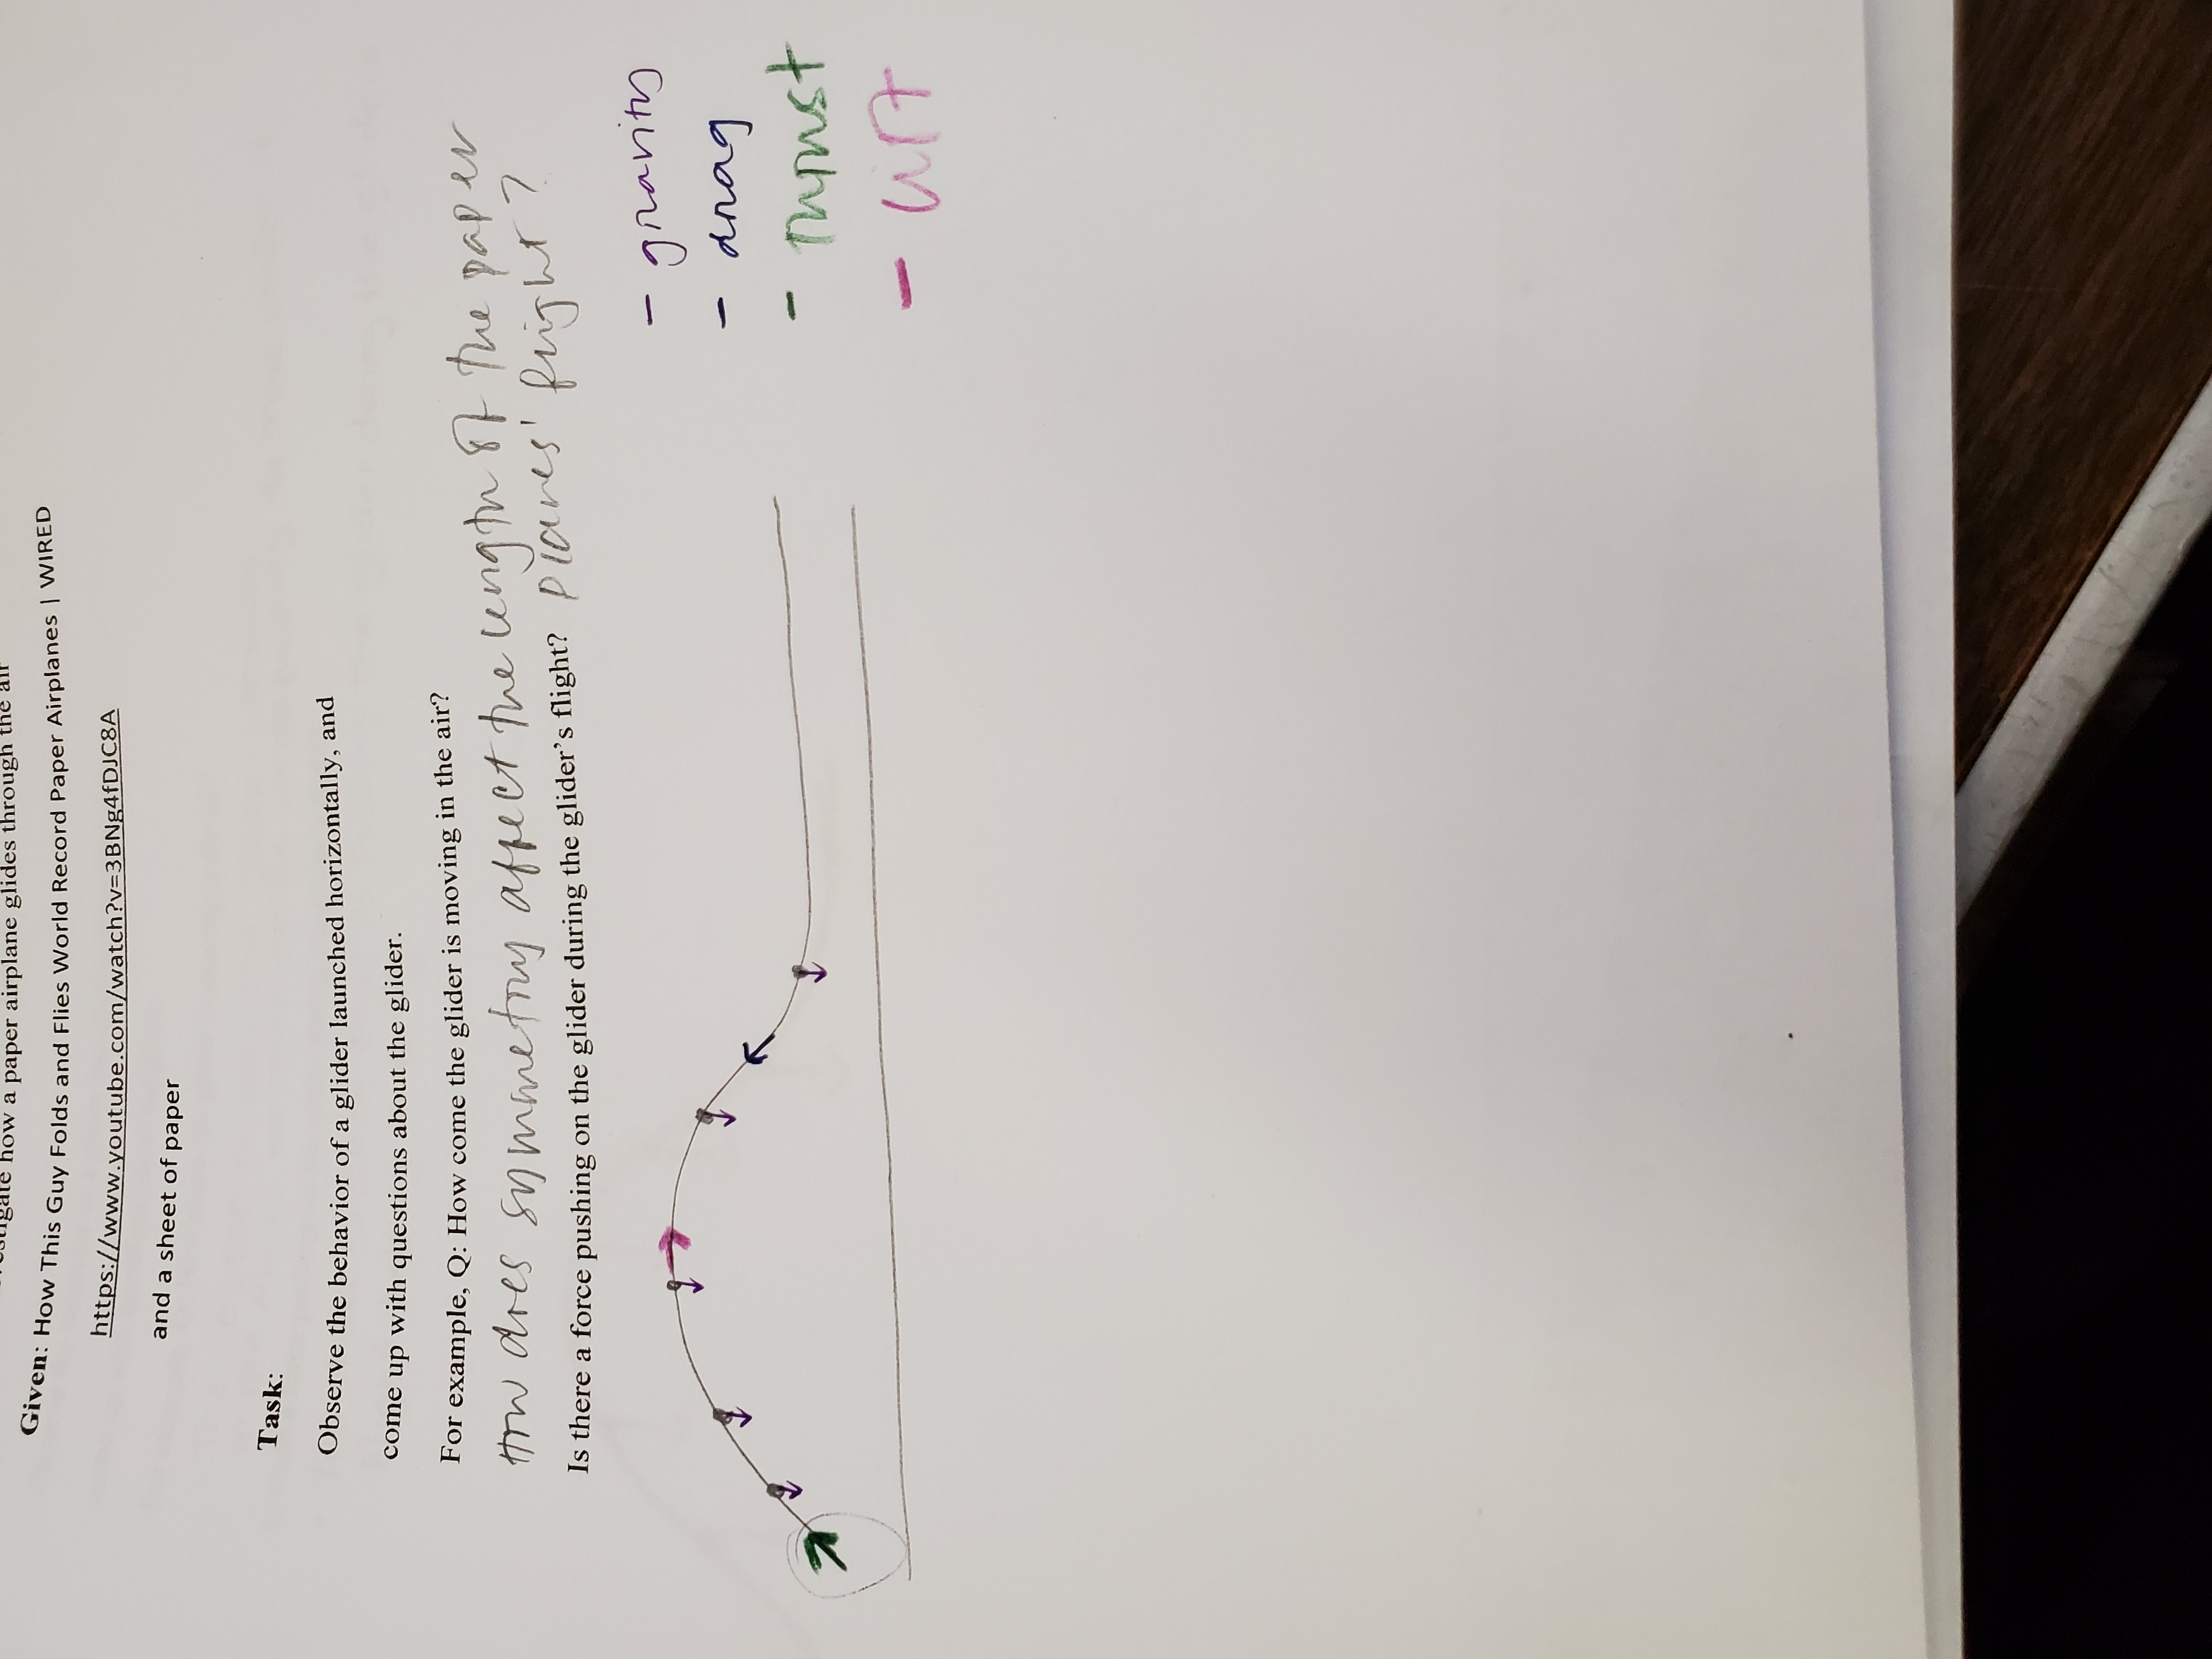 how a paper airplane glides through the air
Given: How This Guy Folds and Flies World Record Paper Airplanes | WIRED
https://www.youtube.com/watch?v=3BNg4fDJC8A
and a sheet of paper
Task:
Observe the behavior of a glider launched horizontally, and
come up with questions about the glider.
For example, Q: How come the glider is moving in the air?
How does symmetry affect the length of the paper
planes' flight?
Is there a force pushing on the glider during the glider's flight?
- gravity
- drag
- Thrust
- Lift